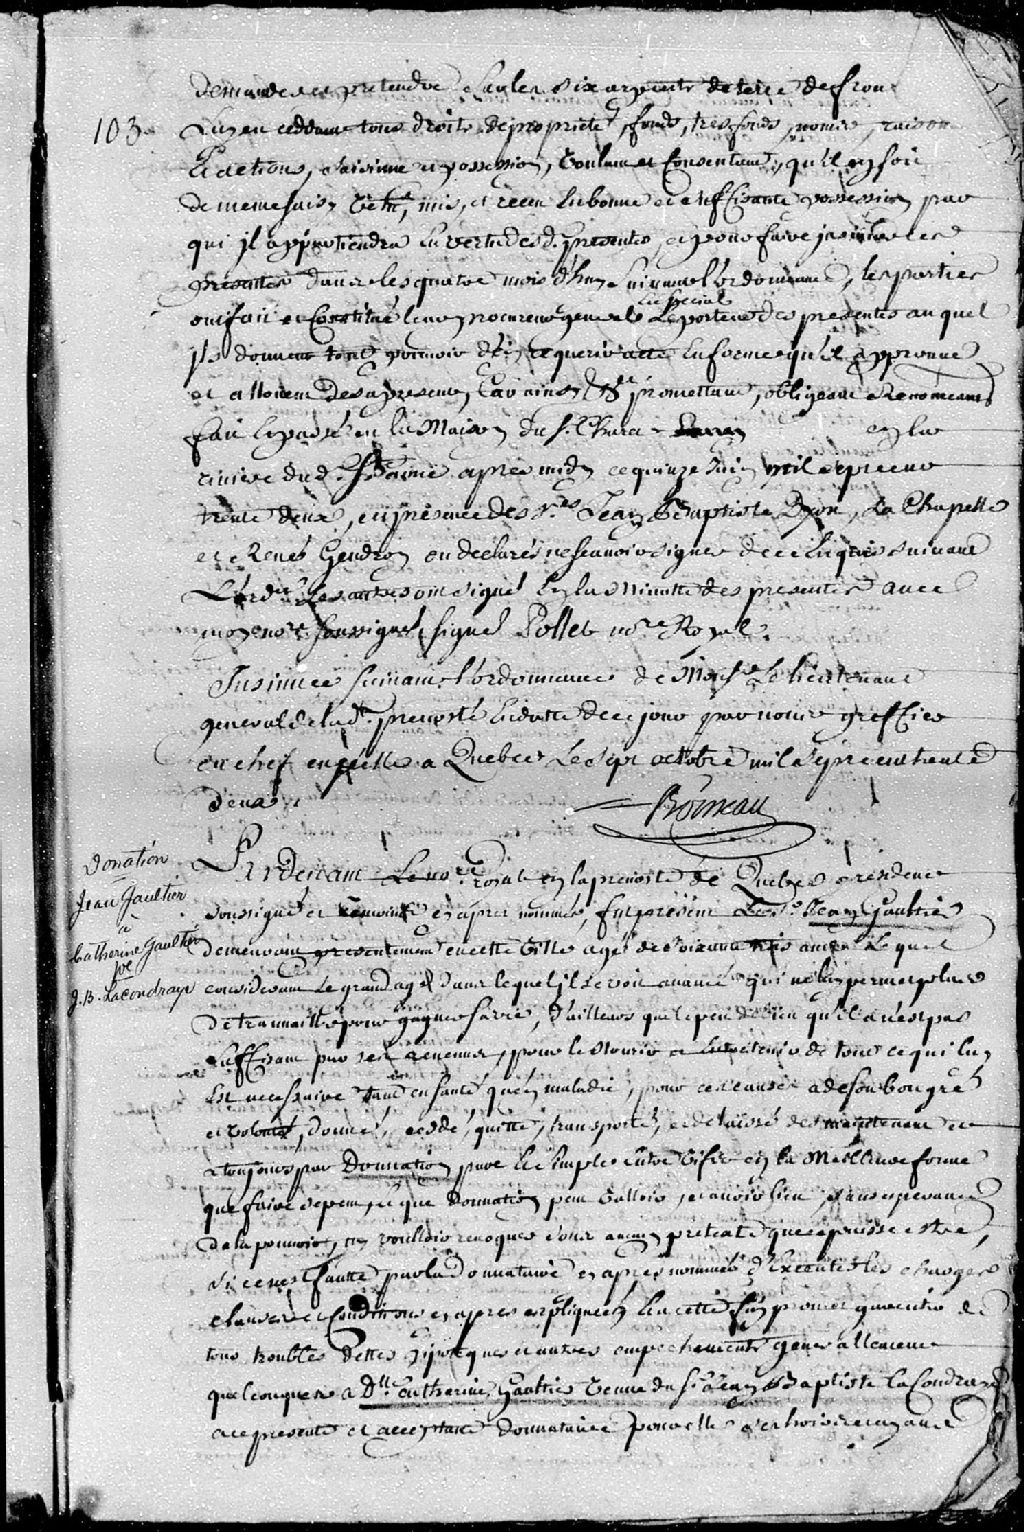 demander et pretendre sur les six arpents de terre de front
103
luy en ceddant tous droits de propriete, fonds, tres fonds, noms, raisons
Et actions, saisinne et possession, Voulant et Consentant, qu'il en soit
de meme saisy Vetu, mis, et receu en bonne et suffisante possession par
qui il appartiendra en vertu des d. presentes, et pour faire insinuer ces
presentes dans les quatre mois d'huy suivant l'ordonnance, les parties
en special
ont fait et Constitué leur procureur general le porteur des presentes auquel
ils donnent tout pouvoir d'en requerir acte Car ainsy &c. promettant, obligeant et Renonceants
fait et passé en la Maison du S. Charr en la
riviere du d. Ste Anne apres midy ce quinze Juin mil sept cent
trente deux, en presence des Srs Jean Baptiste Dyon, La Chapelle
et René Gendron ont declaré ne scavoir signer de ce Enquis suivant
L'ord.ce Les autres ont signé en la Minutte des presentes avec
moy no.re soussigné, signé Pollet no.re Royal.
Insinuée suivant l'ordonnance de Mons.r Le lieutenant
general de la d. prevosté en datte de ce jour par nous greffier
en chef en icelle a Quebec Le sept octobre mil sept cent trente
deux.
Boisseau
Donation
Jean Gaultier
à
Catherine Gaultier
ve
J. B. Lacoudraye
Pardevant Le no.re Royal en la prevosté de Quebec y residence
soussigné et temoins cy apres nommés, fut present Le S.r Jean Gaultier
demeurant presentement en cette Ville agé de soixante ans Lequel
considerant Le grand age dans lequel il se voit avancé qui ne luy permet plus
de travailler pour gagner sa vie, d'ailleurs que le peu de bien qu'il a n'est pas
suffisant par ses revenus, pour le Nourir et Entretenir de tout ce qui luy
Est necessaire tant en santé qu'en maladie, pour ces causes a de son bon gré
et volonté, donné, cedé, quitté, transporté, et delaissé des maintenant et
a toujours par Donnation pure et simple entre Vifs en la Meilleure forme
que faire se peut, et que donnation peut Valloir, et avoir lieu, sans esperance
de la pouvoir, ny voulloir revoquer sous aucun pretexte que ce puisse estre,
si ce n'est faute par la donnataire cy apres nommée d'Executer les charges
clauses et Conditions cy apres expliquées
tous troubles dettes hypotecques et autres empechements generallement
quelconques a D.lle Catherine Gaultier Veuve du S.r Jean Baptiste La Coudraye
a ce presente et acceptante donnataire pour elle ses hoirs et ayans